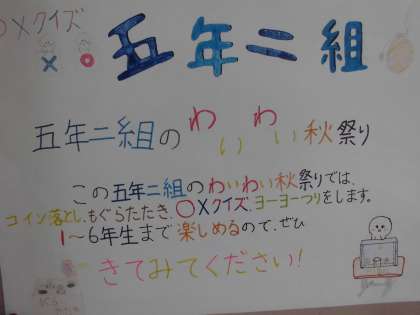 ○×クイズ
五年二組
五年二組のわいわい秋祭り
この五年二組のわいわい秋祭りでは、
コイン落とし、もぐらたたき、○×クイズ、ヨーヨーつりをします。
1〜6年生まで楽しめるので、ぜひ
きてみてください!